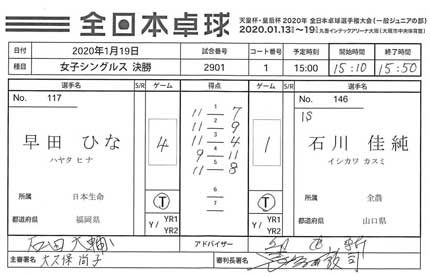 全日本卓球
天皇杯・皇后杯 2020年 全日本卓球選手権大会(一般ジュニアの部)
2020.01.13㊊~19㊐ 丸善インテックアリーナ大阪(大阪市中央体育館)
日付 2020年1月19日 試合番号 コート番号 予定時刻 開始時間 終了時間
種目 女子シングルス 決勝 2901 1 15:00 15:10 15:50
選手名 S/R ゲーム 得点 ゲーム S/R 選手名
No. 117 No. 146
11 1 7
11 2 9
早田 ひな 4 11 3 4 1 石川 佳純
9 4 11
ハヤタ ヒナ 11 5 8 イシカワ カスミ
6
7
所属 日本生命 T T 所属 全農
都道府県 福岡県 Y / YR1 YR2 Y / YR1 YR2 都道府県 山口県
石田 大輔 アドバイザー
主審署名 大久保 尚子 審判長署名